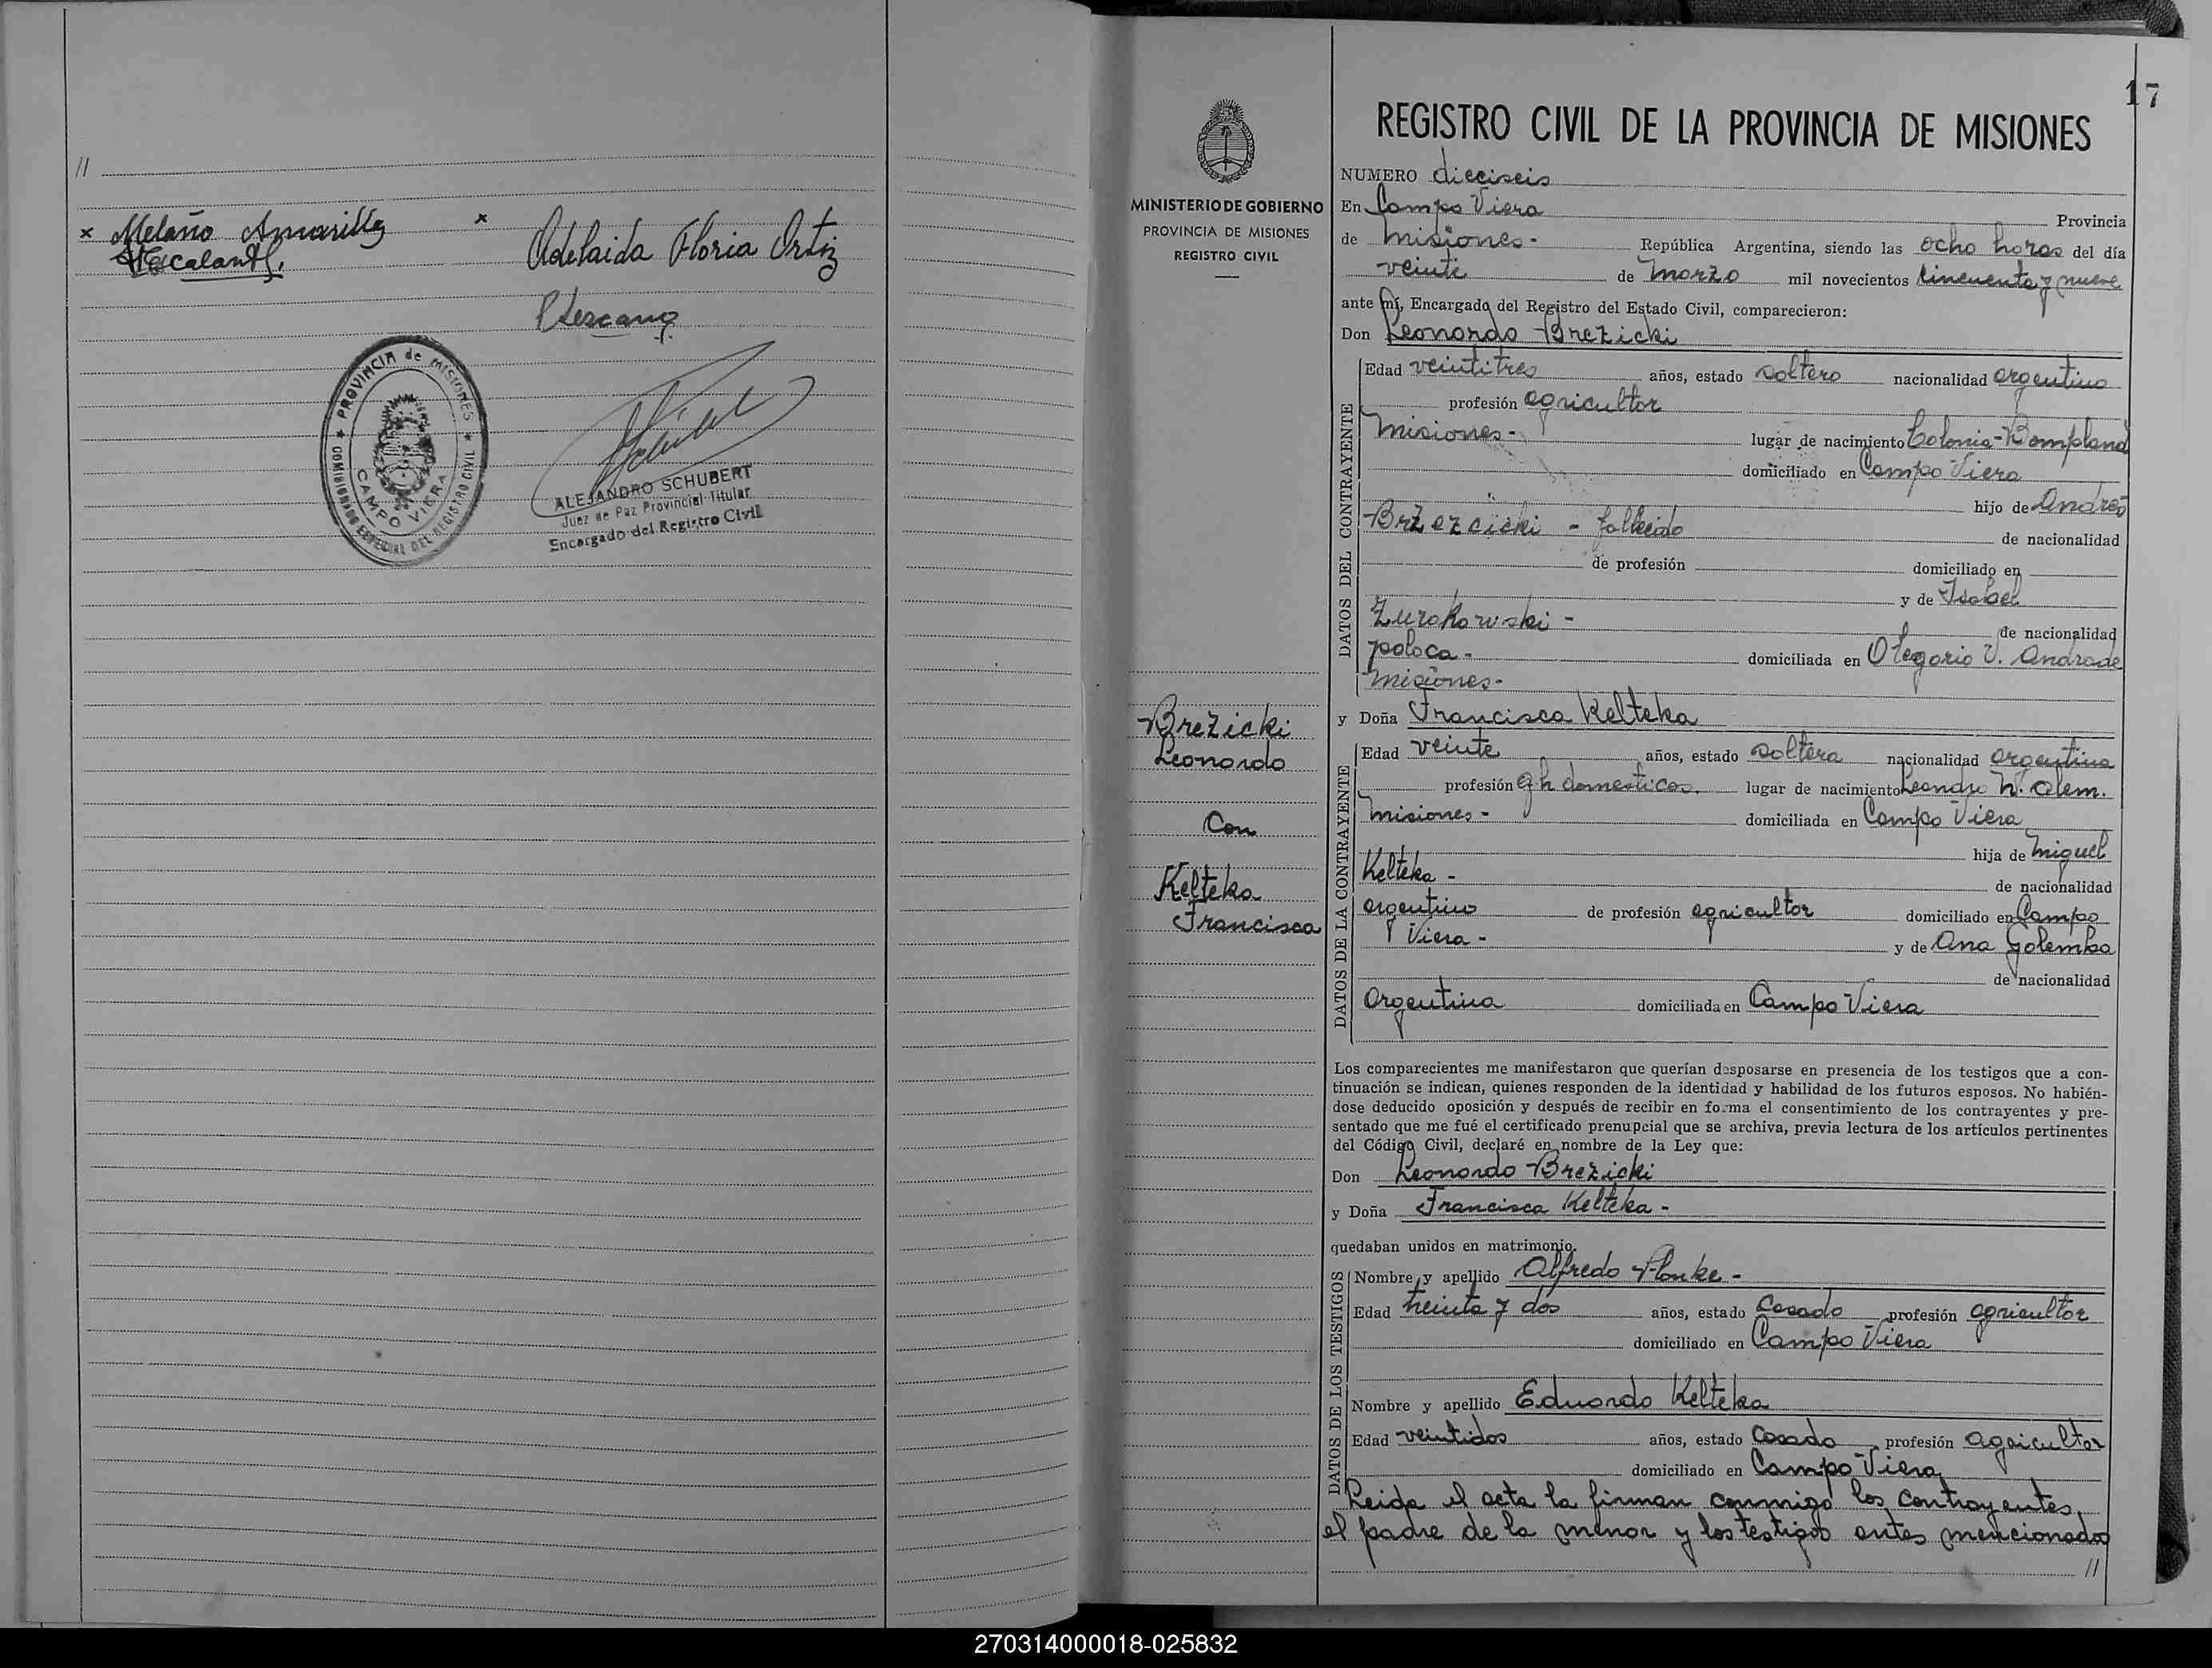 //
x Melanio Amarilla x Adelaida Floria Ortiz
Escalant
Lezcano
PROVINCIA de MISIONES
COMISIONADO ESPECIAL DEL REGISTRO CIVIL
CAMPO VIERA
ALEJANDRO SCHUBERT
Juez de Paz Provincial Titular
Encargado del Registro Civil
17
MINISTERIO DE GOBIERNO
PROVINCIA DE MISIONES
REGISTRO CIVIL
Brezicki
Leonardo
Con
Kelteka
Francisca
REGISTRO CIVIL DE LA PROVINCIA DE MISIONES
NUMERO dieciseis
En Campo Viera Provincia
de Misiones- República Argentina, siendo las ocho horas del día
veinte de Marzo mil novecientos cincuenta y nueve
ante mí, Encargado del Registro del Estado Civil, comparecieron:
Don Leonardo Brezicki
DATOS DEL CONTRAYENTE
Edad veintitres años, estado soltero nacionalidad argentino
profesión agricultor
Misiones- lugar de nacimiento Colonia-Bompland
domiciliado en Campo Viera
hijo de Andres
Brzezcicki - fallecido de nacionalidad
de profesión domiciliado en
y de Isabel
Zurakowski - de nacionalidad
polaca- domiciliada en Olegario V. Andrade
Misiones-
y Doña Francisca Kelteka
DATOS DE LA CONTRAYENTE
Edad veinte años, estado soltera nacionalidad argentina
profesión q h domesticos. lugar de nacimiento Leandro N. Alem.
Misiones- domiciliada en Campo Viera
hija de Miguel
Kelteka - de nacionalidad
argentino de profesión agricultor domiciliado en Campo
Viera- y de Ana Golemba
de nacionalidad
Argentina domiciliada en Campo Viera
Los comparecientes me manifestaron que querían desposarse en presencia de los testigos que a con-
tinuación se indican, quienes responden de la identidad y habilidad de los futuros esposos. No habién-
dose deducido oposición y después de recibir en forma el consentimiento de los contrayentes y pre-
sentado que me fué el certificado prenupcial que se archiva, previa lectura de los artículos pertinentes
del Código Civil, declaré en nombre de la Ley que:
Don Leonardo Brezicki
y Doña Francisca Kelteka -
quedaban unidos en matrimonio.
DATOS DE LOS TESTIGOS
Nombre y apellido Alfredo Plouke -
Edad treinta y dos años, estado Casado profesión agricultor
domiciliado en Campo Viera
Nombre y apellido Eduardo Kelteka
Edad veintidos años, estado Casado profesión agricultor
domiciliado en Campo Viera
Leida el acta la firman conmigo los contrayentes
el padre de la menor y los testigos antes mencionados
//
270314000018-025832